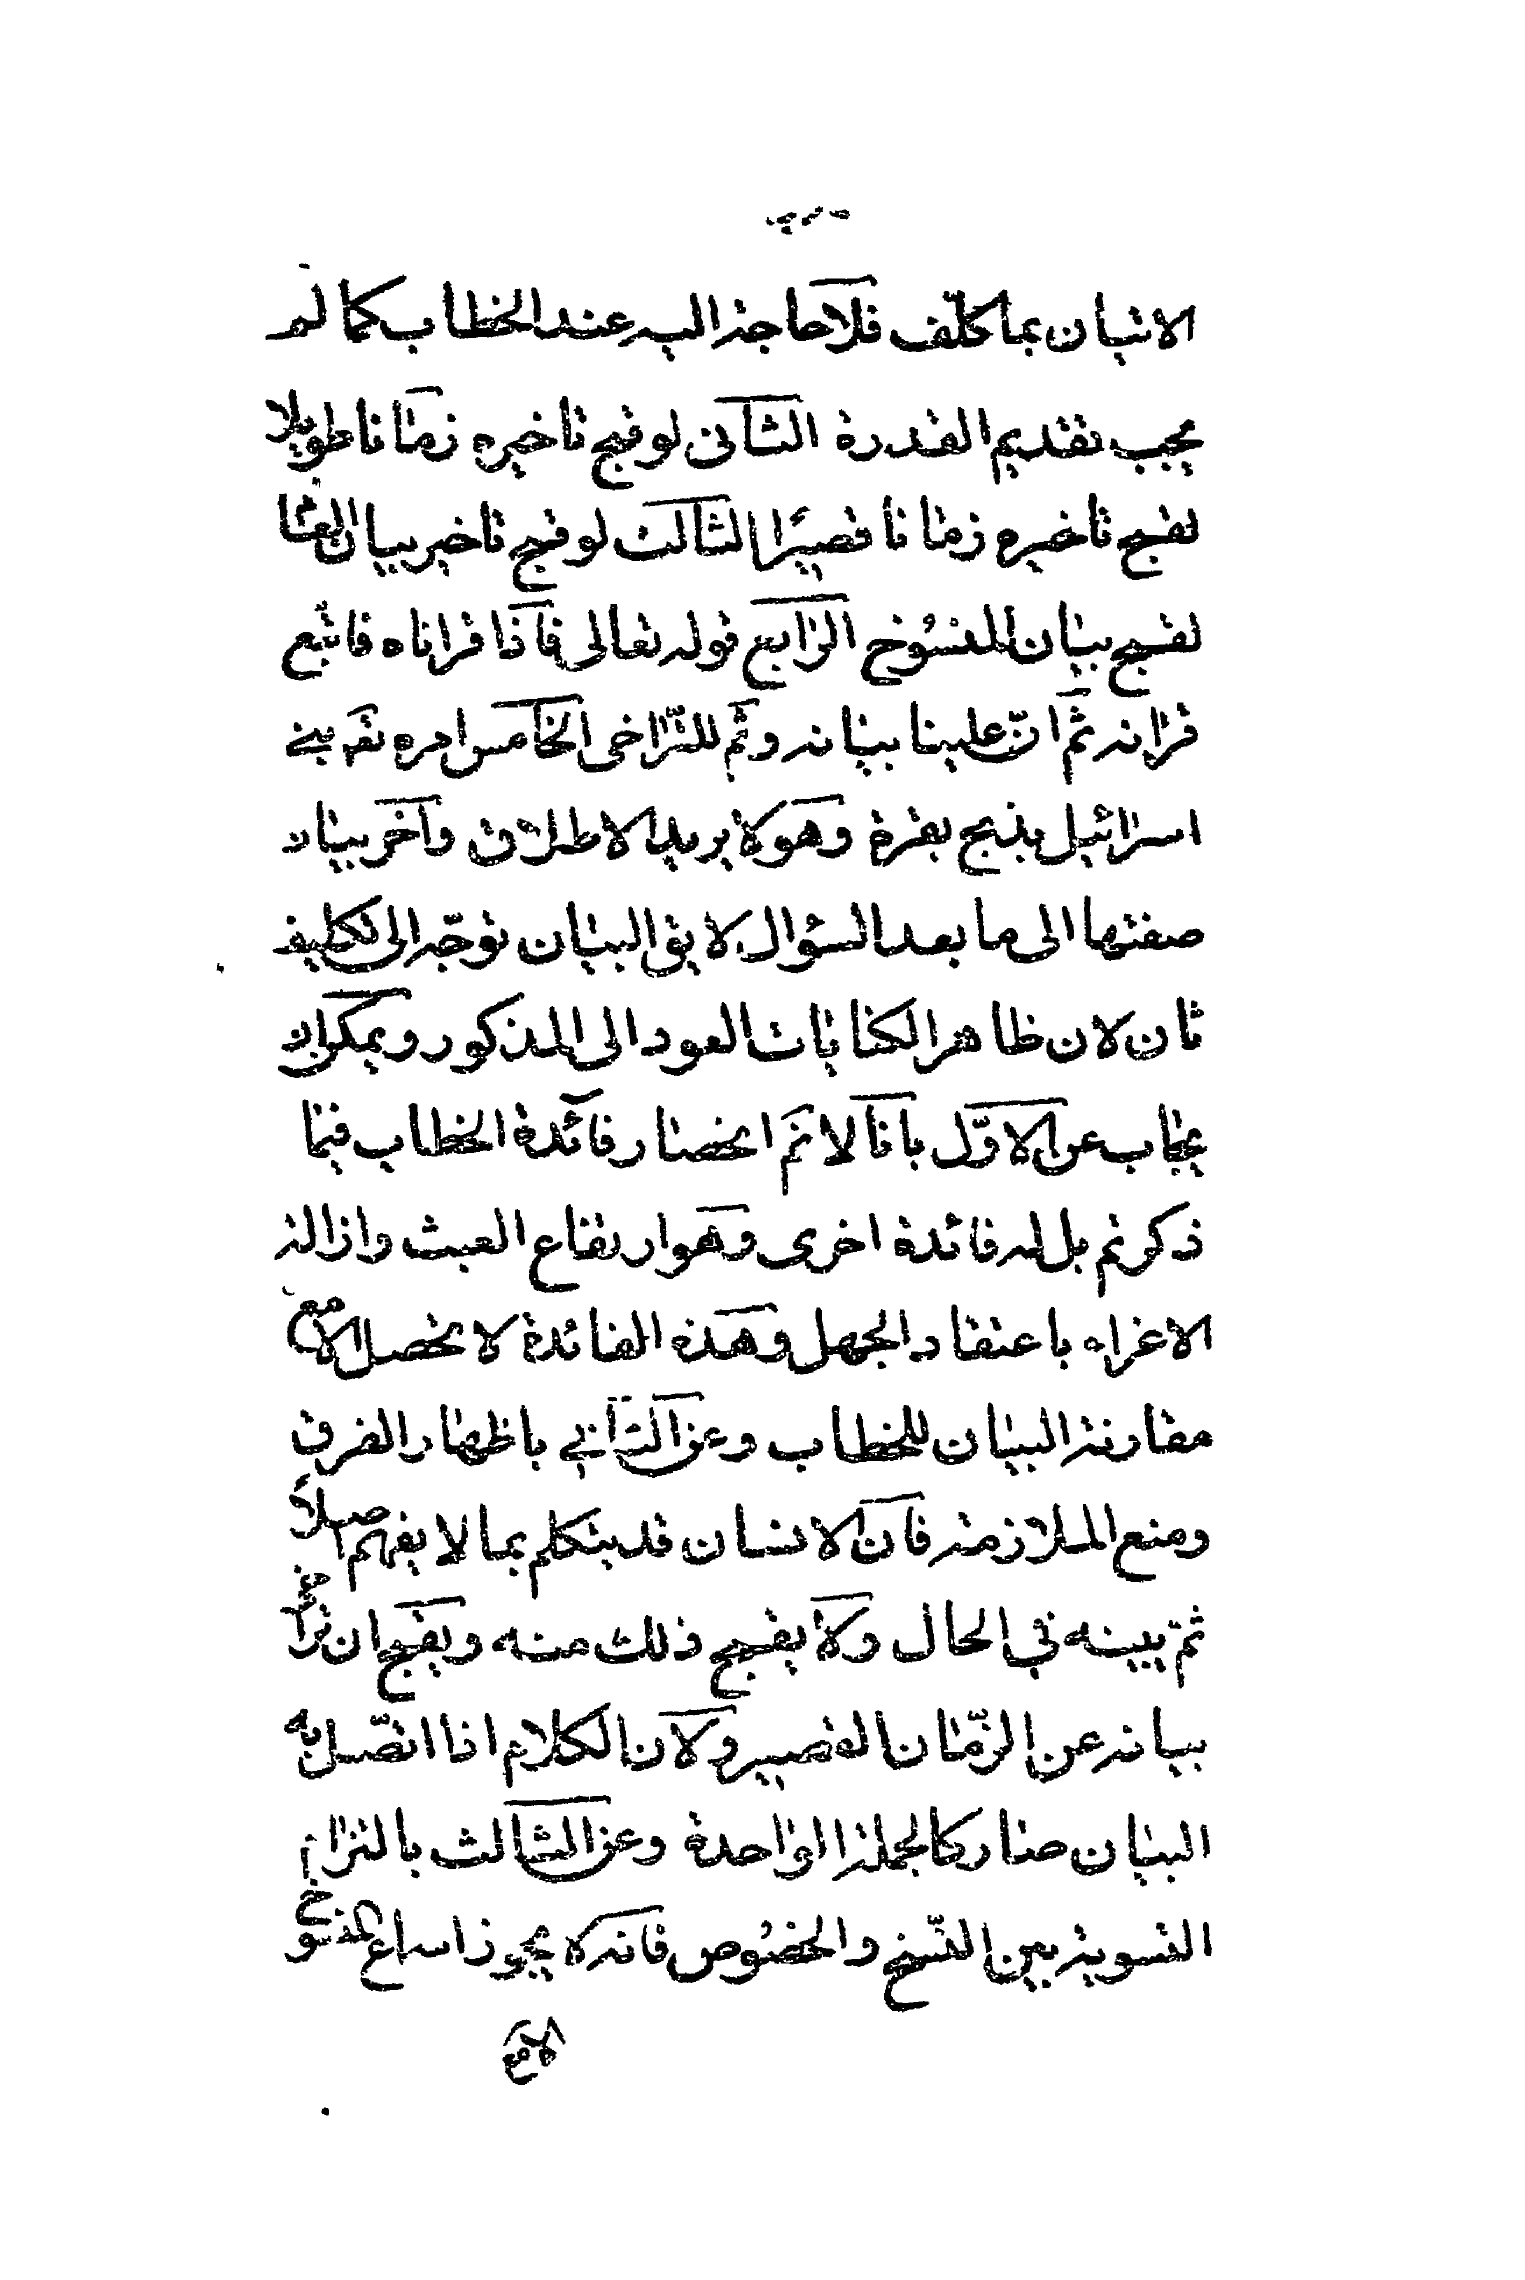 الاتيان بما كلّف فلا حاجة اليه عند الخطاب كما لم
يجب تقديم القدرة الثانى لو قبح تاخيره زمانا طويلا
لقبح تاخيره زمانا قصيرا الثالث لو قبح تاخير بيان العام
لقبح بيان المنسوخ الرابع قوله تعالى فاذا قراناه فاتبع
قرانه ثم انّ علينا بيانه وثم للتّراخى الخامس امره تع بنى
اسرائيل بذبح بقرة وهو لا يريد الاطلاق واخر بيان
صفتها الى ما بعد السؤال لا يق البيان توجّه الى تكليف
ثان لان ظاهر الكنايات العود الى المذكور ويمكن ان
يجاب عن الاوّل بانا لا نم انحصار فائدة الخطاب فيما
ذكرتم بل له فائدة اخرى وهو ارتفاع العبث وازالة
الاغراء باعتقاد الجهل وهذه الفائدة لا تحصل الا مع
مقارنة البيان للخطاب وعن الثانى باظهار الفرق
ومنع الملازمة فان الانسان قد يتكلم بما لا يفهم اصلا
ثمّ يبينه في الحال ولا يقبح ذلك منه ويقبح ان تراخى
بيانه عن الزّمان القصير ولان الكلام اذا اتصّل به
البيان صار كالجملة الواحدة وعن الثالث بالتزام
التسوية بين النّسخ والخصوص فانه لا يجوز اسماع المنسوخ
الا مع